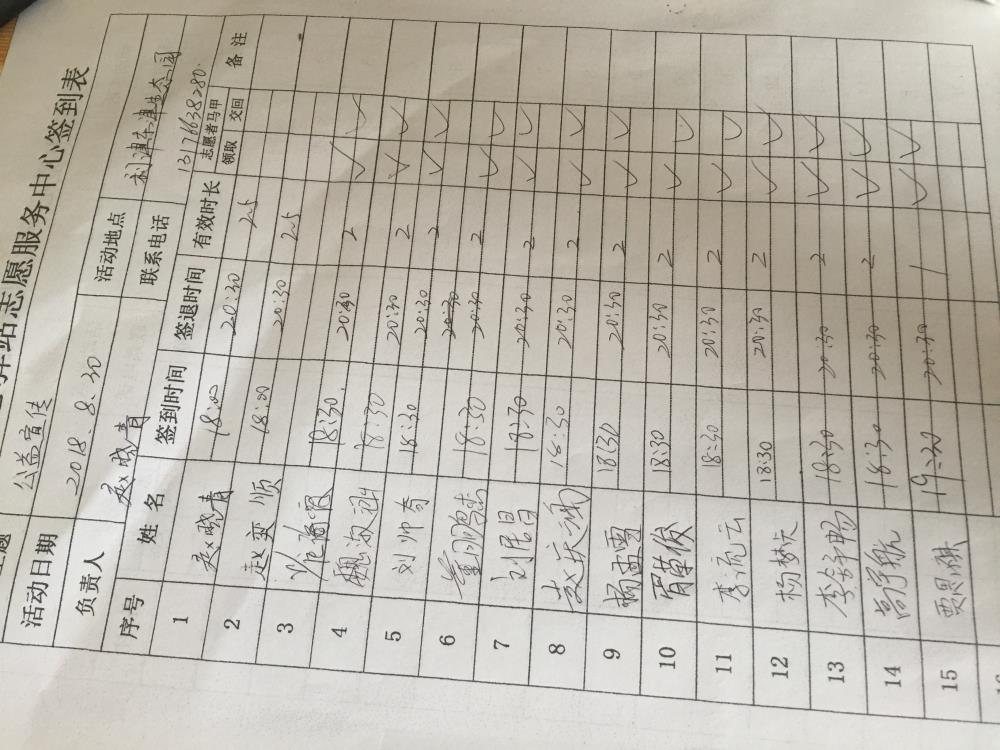 驿站志愿服务中心签到表
公益宣传
活动日期 2018.8.30 活动地点 利津东津生态园
负责人 赵晓青 联系电话 13176638280
序号 姓名 签到时间 签退时间 有效时长 志愿者马甲 领取 交回 备注
1 赵晓青 18:00 20:30 2.5
2 赵奕顺 18:00 20:30 2.5
3 18:30 20:30 2 ✓ ✓
4 18:30 20:30 2 ✓ ✓
5 刘帅奇 18:30 20:30 2 ✓ ✓
6 18:30 20:30 2 ✓ ✓
7 刘居昌 18:30 20:30 2 ✓ ✓
8 18:30 20:30 2 ✓ ✓
9 杨雷雷 18:30 20:30 2 ✓ ✓
10 胥革俊 18:30 20:30 2 ✓ ✓
11 李流云 18:30 20:30 2 ✓ ✓
12 杨梦天 18:30 20:30 2 ✓ ✓
13 18:30 20:30 2 ✓ ✓
14 18:30 20:30 2 ✓ ✓
15 贾思琪 19:30 20:30 1 ✓ ✓